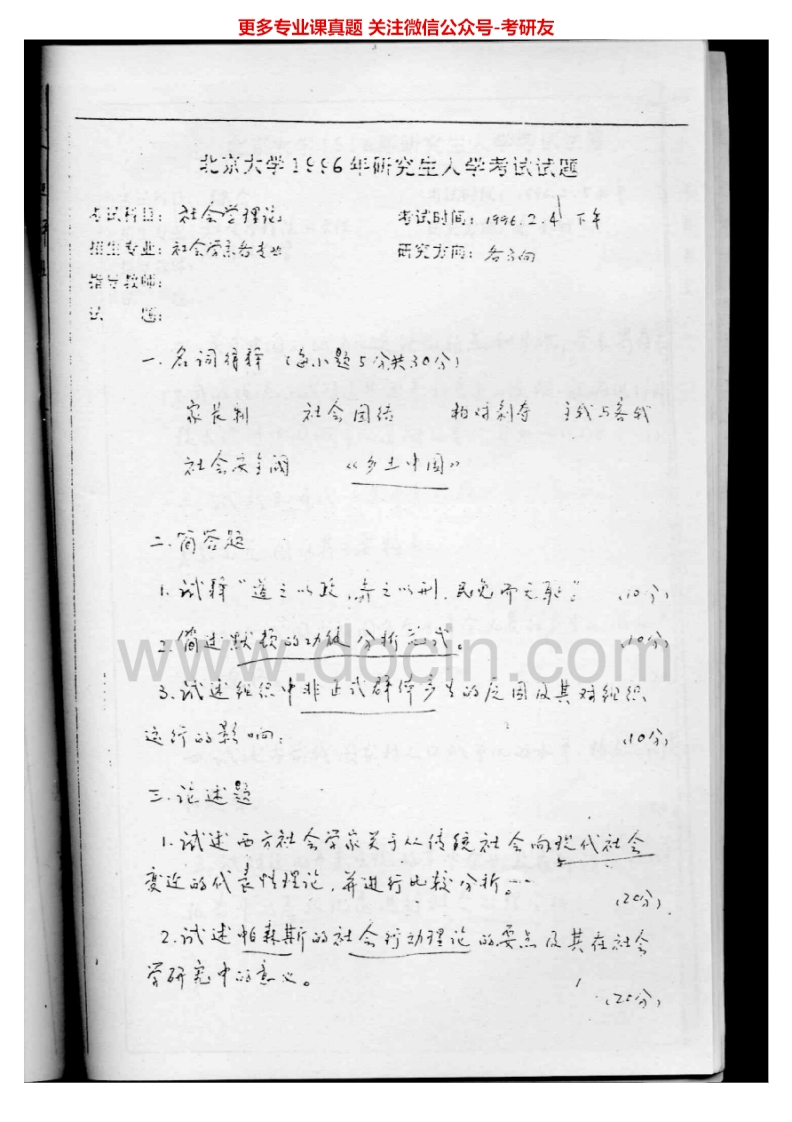 更多专业课真题 关注微信公众号-考研友
北京大学1996年研究生入学考试试题
考试科目: 社会学理论 考试时间: 1996.2.4 下午
招生专业: 社会学系各专业 研究方向: 各方向
指导教师:
试 题:
一. 名词解释 (每小题5分共30分)
家长制 社会团结 相对剥夺 主我与客我
社会安全阀 《乡土中国》
二. 简答题
1. 试释“道之以政,齐之以刑,民免而无耻” (10分)
2. 简述默顿的功能分析范式。 (10分)
www.docin.com
3. 试述组织中非正式群体产生的原因及其对组织
运行的影响. (10分)
三. 论述题
1. 试述西方社会学家关于从传统社会向现代社会
变迁的代表性理论,并进行比较分析。 (20分)
2. 试述帕森斯的社会行动理论的要点及其在社会
学研究中的意义。
(20分)